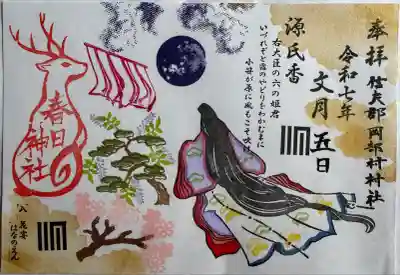 奉拝 信夫郡岡部村村社
令和七年
文月五日
源氏香
右大臣の六の姫君
いづれぞと露のやどりをわかむまに
小笹が原に風もこそ吹け
春日
神社
八 花宴
はなのえん